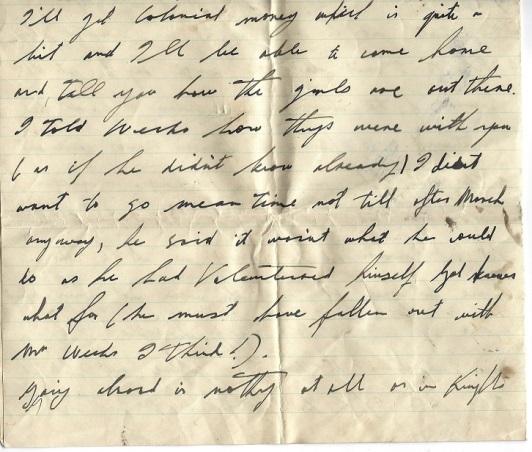 I'll get Colonial money which is quite a
bit and I'll be able to come home
and tell you how the girls are out there.
I told Weeks how things were with you
(as if he didn't know already) I didnt
want to go mean time not till after March
anyway, he said it wasnt what he could
do as he had Volunteered himself God knows
what for (he must have fallen out with
Mrs Weeks I think!).
going abroad is nothing at all as in